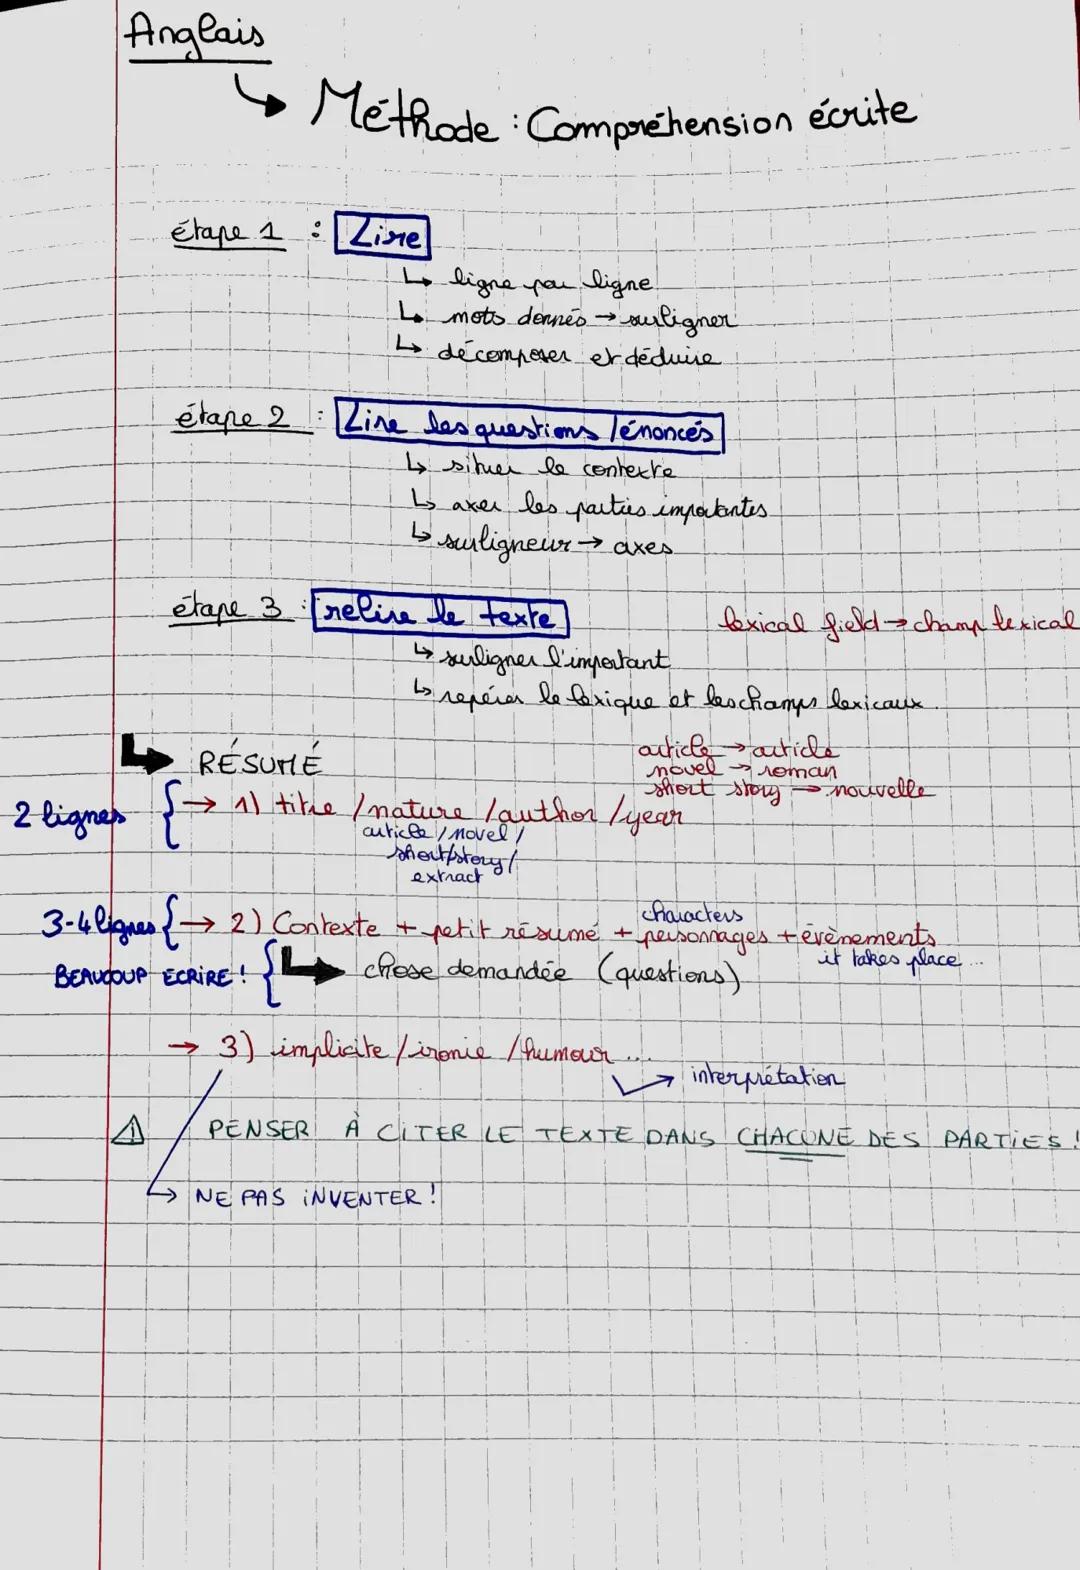 Anglais
↳ Méthode : Compréhension écrite
étape 1 : Lire
↳ ligne par ligne
↳ mots donnés → surligner
↳ décomposer et déduire
étape 2 : Lire les questions / énoncés
↳ situer le contexte
↳ axer les parties importantes
↳ surligneur → axes
étape 3 : relire le texte
lexical field → champ lexical
↳ surligner l'important
↳ repérer le lexique et les champs lexicaux.
↳ RÉSUMÉ
article → article
novel → roman
short story → nouvelle
2 lignes { → 1) titre / nature / author / year
article / novel /
short/story /
extract
characters
3-4 lignes { → 2) Contexte + petit résumé + personnages + évènements
it takes place ...
BEAUCOUP ECRIRE ! { ↳ chose demandée (questions)
→ 3) implicite / ironie / humour ...
→ interprétation
⚠ PENSER À CITER LE TEXTE DANS CHACUNE DES PARTIES !
↳ NE PAS INVENTER !